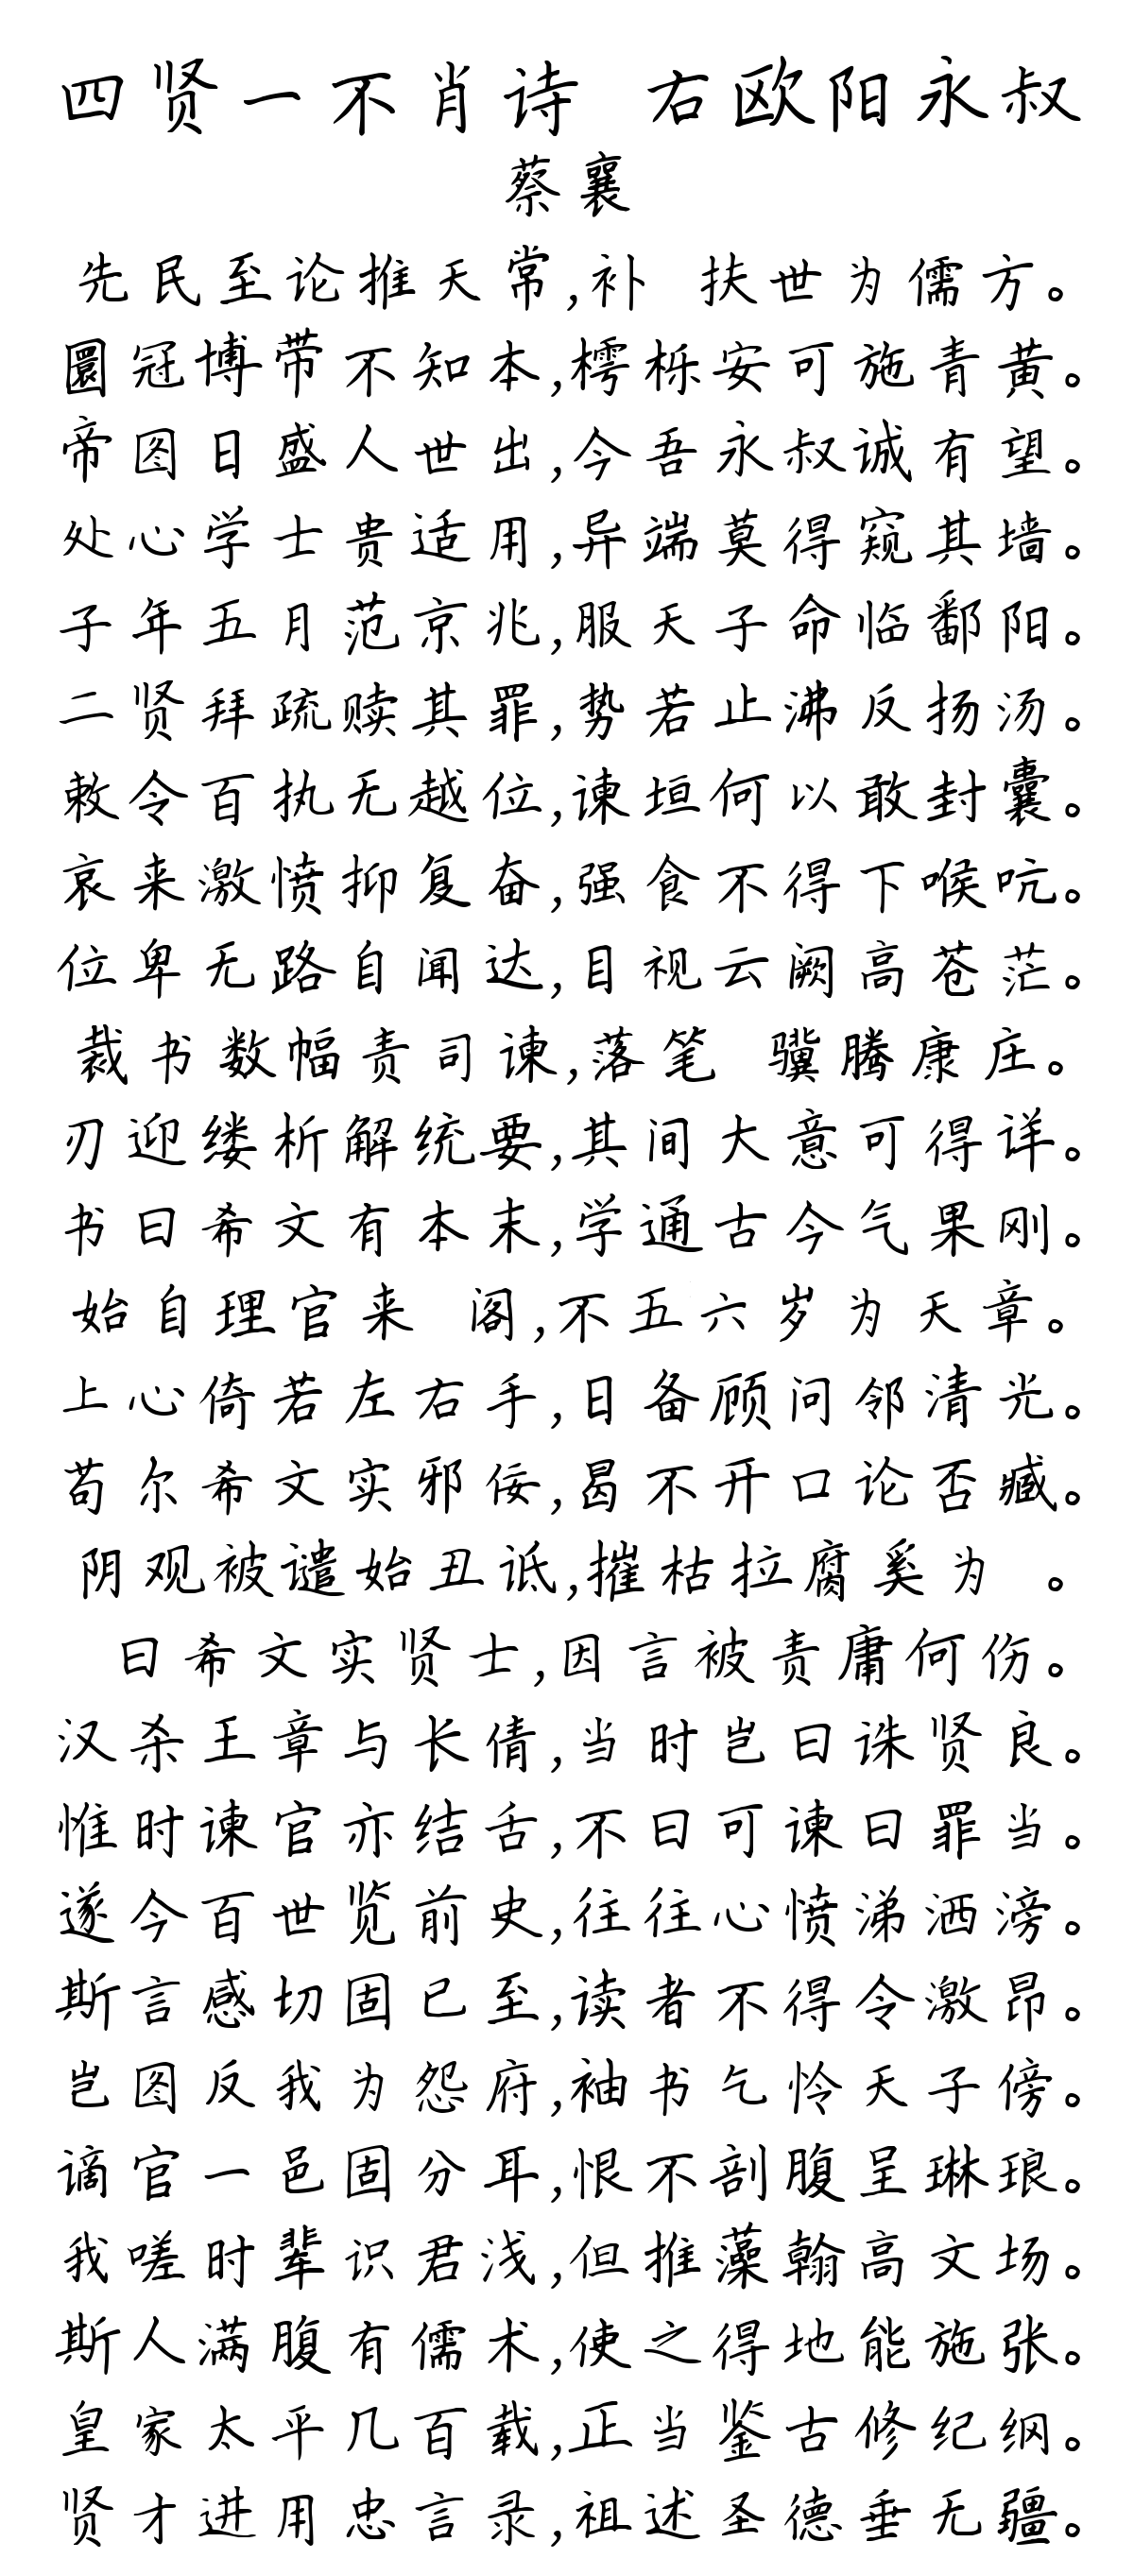 四贤一不肖诗 右欧阳永叔
蔡襄
先民至论推天常,补 扶世为儒方。
圜冠博带不知本,樗栎安可施青黄。
帝图日盛人世出,今吾永叔诚有望。
处心学士贵适用,异端莫得窥其墙。
子年五月范京兆,服天子命临鄱阳。
二贤拜疏赎其罪,势若止沸反扬汤。
敕令百执无越位,谏垣何以敢封囊。
哀来激愤抑复奋,强食不得下喉吭。
位卑无路自闻达,目视云阙高苍茫。
裁书数幅责司谏,落笔 骥腾康庄。
刃迎缕析解统要,其间大意可得详。
书曰希文有本末,学通古今气果刚。
始自理官来 阁,不五六岁为天章。
上心倚若左右手,日备顾问邻清光。
苟尔希文实邪佞,曷不开口论否臧。
阴观被谴始丑诋,摧枯拉腐奚为 。
曰希文实贤士,因言被责庸何伤。
汉杀王章与长倩,当时岂曰诛贤良。
惟时谏官亦结舌,不曰可谏曰罪当。
遂今百世览前史,往往心愤涕洒滂。
斯言感切固已至,读者不得令激昂。
岂图反我为怨府,袖书乞怜天子傍。
谪官一邑固分耳,恨不剖腹呈琳琅。
我嗟时辈识君浅,但推藻翰高文场。
斯人满腹有儒术,使之得地能施张。
皇家太平几百载,正当鉴古修纪纲。
贤才进用忠言录,祖述圣德垂无疆。